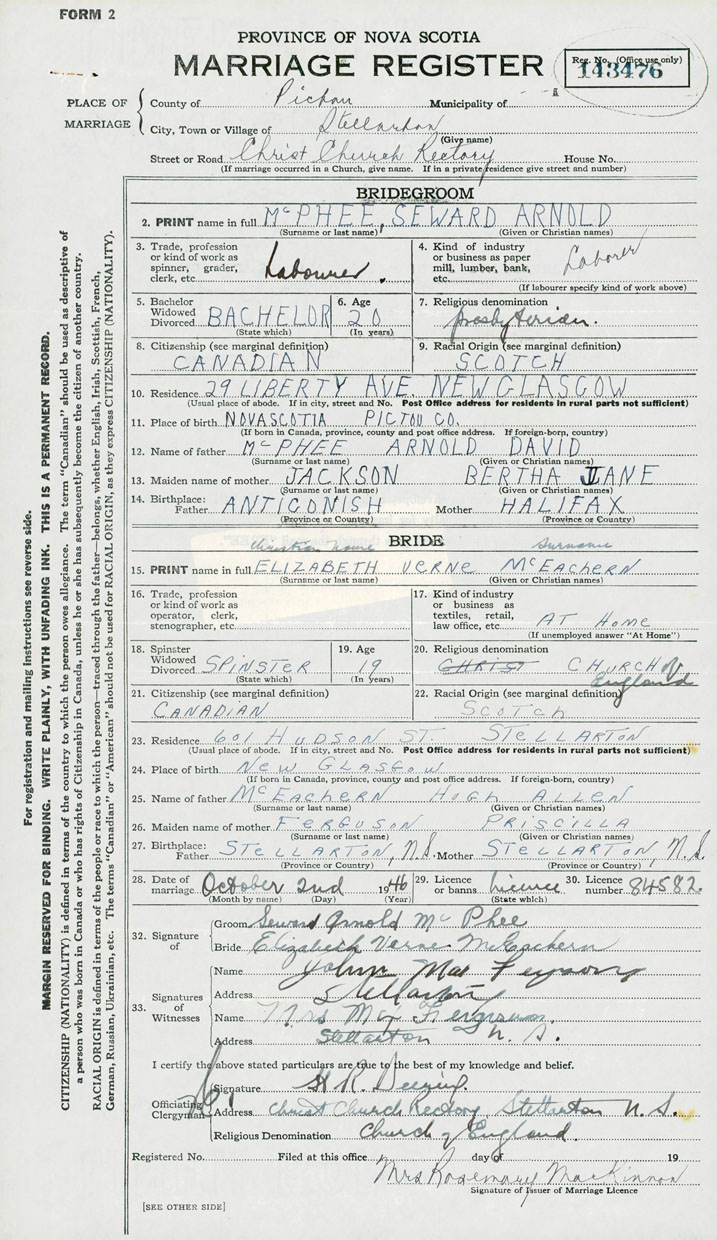 FORM 2
PROVINCE OF NOVA SCOTIA
MARRIAGE REGISTER
Reg. No. (Office use only)
143476
PLACE OF MARRIAGE
County of Pictou Municipality of
City, Town or Village of Stellarton
(Give name)
Street or Road Christ Church Rectory House No.
(If marriage occurred in a Church, give name. If in a private residence give street and number)
BRIDEGROOM
2. PRINT name in full McPHEE, SEWARD ARNOLD
(Surname or last name) (Given or Christian names)
3. Trade, profession or kind of work as spinner, grader, clerk, etc. Labourer.
4. Kind of industry or business as paper mill, lumber, bank, etc. Laborer
(If labourer specify kind of work above)
5. Bachelor Widowed Divorced BACHELOR
(State which)
6. Age 20
(In years)
7. Religious denomination Presbyterian.
8. Citizenship (see marginal definition) CANADIAN
9. Racial Origin (see marginal definition) SCOTCH
10. Residence 29 LIBERTY AVE. NEW GLASGOW
(Usual place of abode. If in city, street and No. Post Office address for residents in rural parts not sufficient)
11. Place of birth NOVA SCOTIA PICTOU CO.
(If born in Canada, province, county and post office address. If foreign-born, country)
12. Name of father McPHEE ARNOLD DAVID
(Surname or last name) (Given or Christian names)
13. Maiden name of mother JACKSON BERTHA JANE
(Surname or last name) (Given or Christian names)
14. Birthplace: Father ANTIGONISH Mother HALIFAX
(Province or Country) (Province or Country)
BRIDE
Christian name Surname
15. PRINT name in full ELIZABETH VERNE McEACHERN
(Surname or last name) (Given or Christian names)
16. Trade, profession or kind of work as operator, clerk, stenographer, etc.
17. Kind of industry or business as textiles, retail, law office, etc. AT HOME
(If unemployed answer "At Home")
18. Spinster Widowed Divorced SPINSTER
(State which)
19. Age 19
(In years)
20. Religious denomination CHRIST CHURCH of England
21. Citizenship (see marginal definition) CANADIAN
22. Racial Origin (see marginal definition) SCOTCH
23. Residence 601 HUDSON ST. STELLARTON
(Usual place of abode. If in city, street and No. Post Office address for residents in rural parts not sufficient)
24. Place of birth NEW GLASGOW
(If born in Canada, province, county and post office address. If foreign-born, country)
25. Name of father McEACHERN HUGH ALLEN
(Surname or last name) (Given or Christian names)
26. Maiden name of mother FERGUSON PRISCILLA
(Surname or last name) (Given or Christian names)
27. Birthplace: Father STELLARTON, N.S. Mother STELLARTON, N.S.
(Province or Country) (Province or Country)
28. Date of marriage October 2nd 1946
(Month by name) (Day) (Year)
29. Licence or banns Licence
(State which)
30. Licence number 84582.
32. Signature of
Groom Seward Arnold McPhee
Bride Elizabeth Verne McEachern
33. Signatures of Witnesses
Name
Address Stellarton
Name Mrs Ferguson.
Address Stellarton N. S.
I certify the above stated particulars are true to the best of my knowledge and belief.
Officiating Clergyman
Signature
Address Christ Church Rectory, Stellarton N. S.
Religious Denomination Church of England.
Registered No. Filed at this office day of 19
Mrs Rosemary MacKinnon
Signature of Issuer of Marriage Licence
[SEE OTHER SIDE]
For registration and mailing instructions see reverse side.
MARGIN RESERVED FOR BINDING. WRITE PLAINLY, WITH UNFADING INK. THIS IS A PERMANENT RECORD.
CITIZENSHIP (NATIONALITY) is defined in terms of the country to which the person owes allegiance. The term "Canadian" should be used as descriptive of
a person who was born in Canada or who has rights of Citizenship in Canada, unless he or she has subsequently become the citizen of another country.
RACIAL ORIGIN is defined in terms of the people or race to which the person—traced through the father—belongs, whether English, Irish, Scottish, French,
German, Russian, Ukrainian, etc. The terms "Canadian" or "American" should not be used for RACIAL ORIGIN, as they express CITIZENSHIP (NATIONALITY).